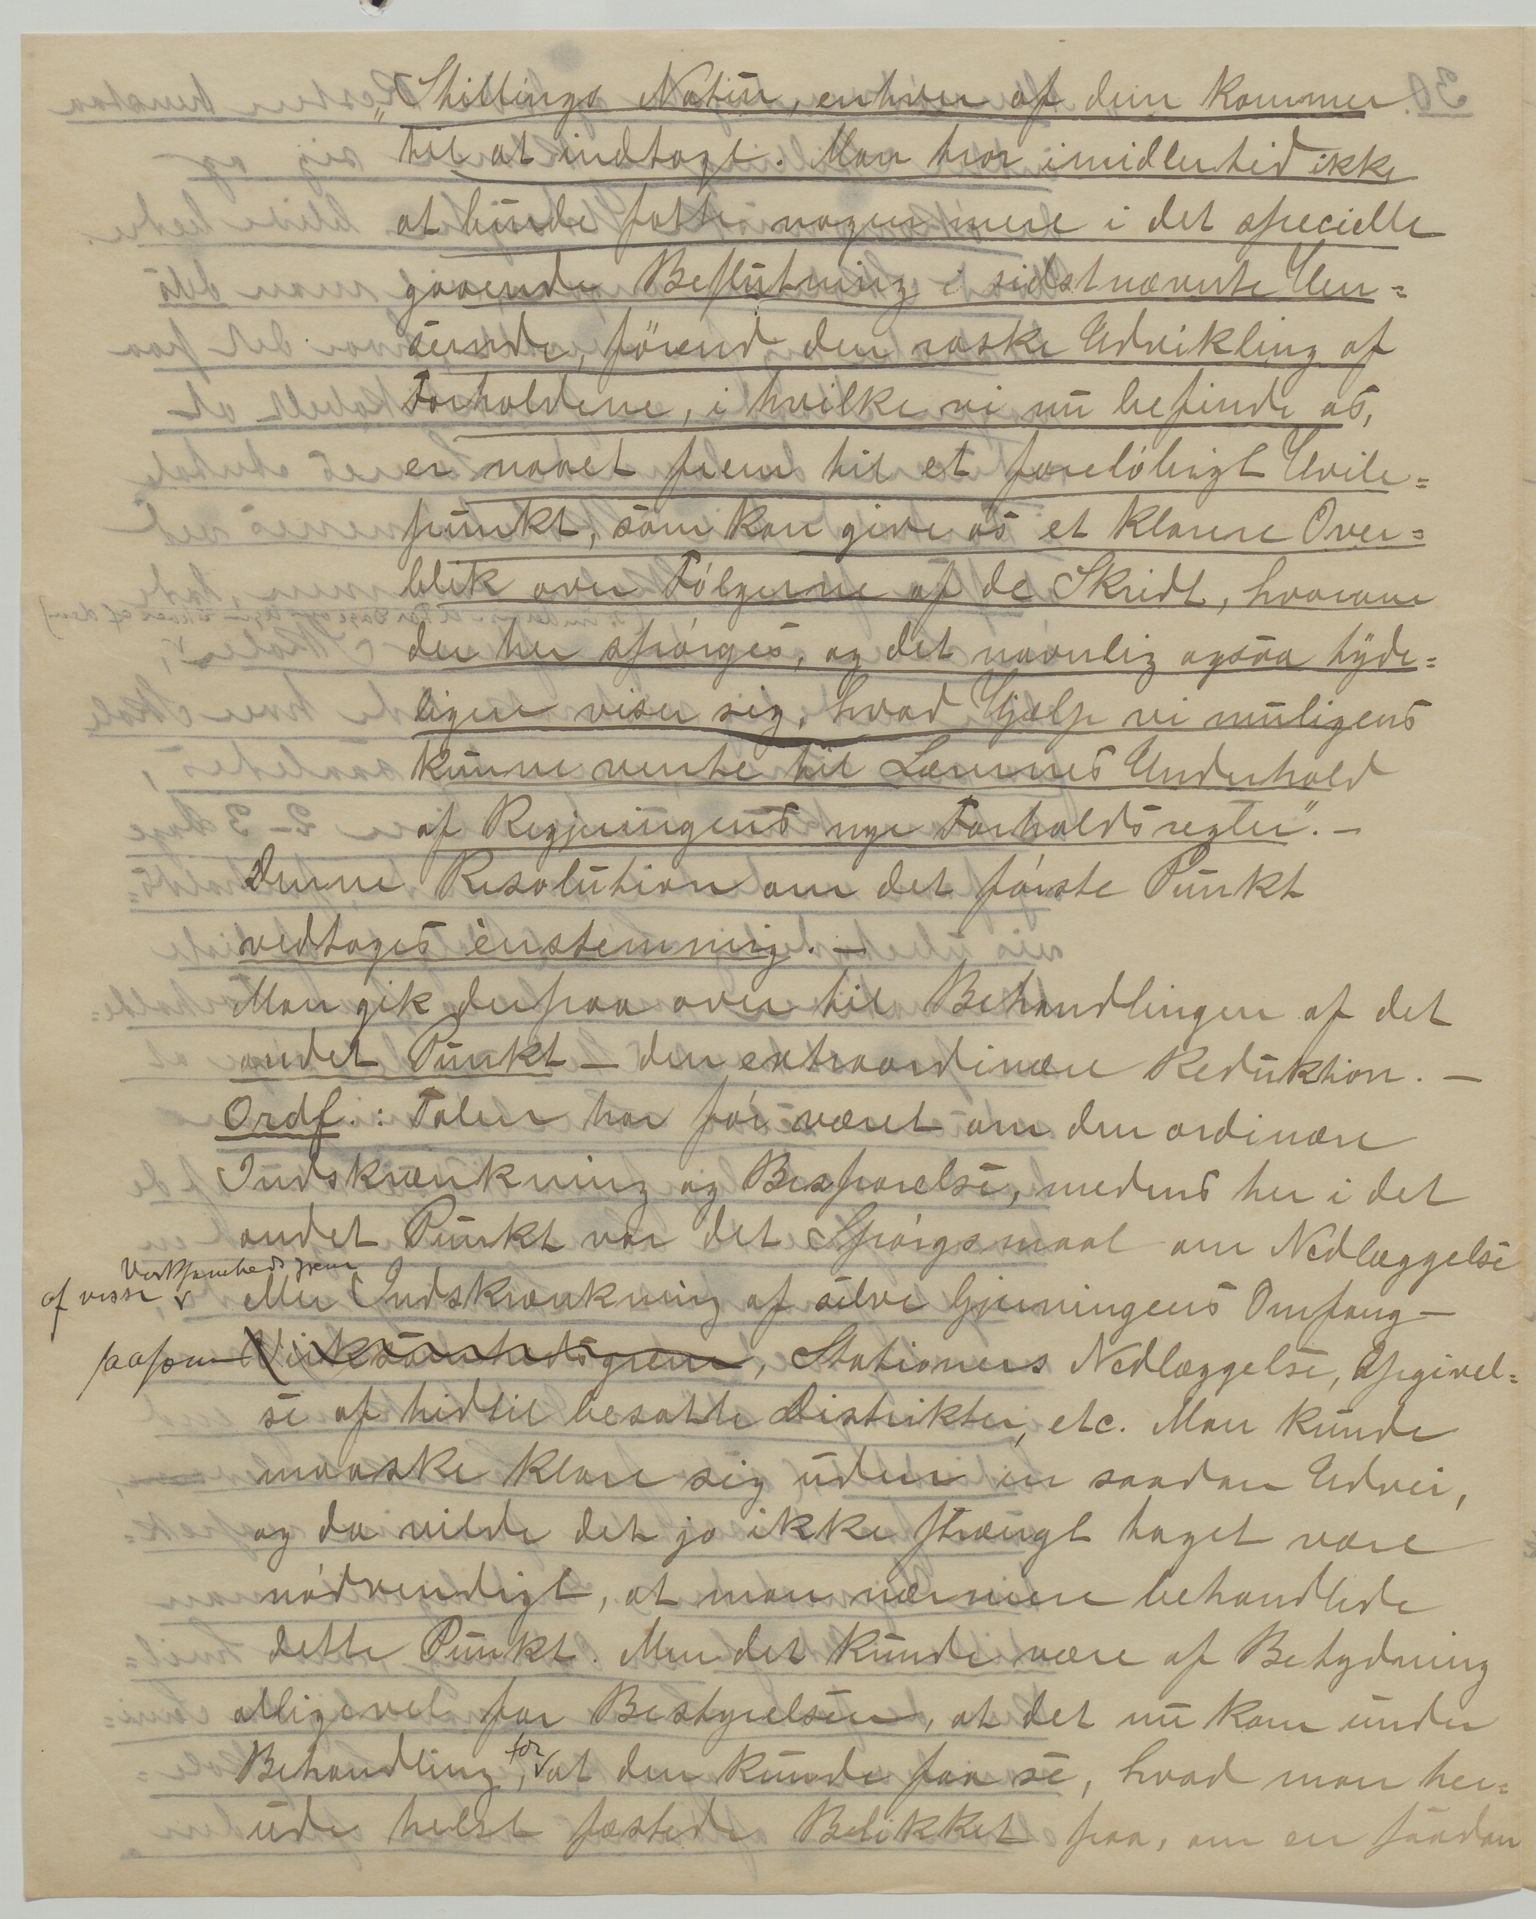 „Stillings Natur, enhver af dem kommer
til at indtage. Man tror imidlertid ikke
at kunde fatte nogen mere i det specielle
gaaende Beslutning i sidstnævnte Hen=
seende, førend den raske Udvikling af
Forholdene, i hvilke vi nu befinde os,
er naaet frem til et foreløbigt Hvile=
punkt, som kan give os et klarere Over=
blik over Følgerne af de Skridt, hvorom
der her spørges, og det navnlig ogsaa tyde=
ligere viser sig, hvad Hjælp vi muligens
kunne vente til Lærernes Underhold
af Regjeringens nye Forholdsregler”. —
Denne Resolution om det første Punkt
vedtages énstemmig. —
Man gik derpaa over til Behandlingen af det
andet Punkt — den extraordinære Reduktion. —
Ordf.: Talen har før været om den ordinære
Indskrænkning og Besparelse, medens her i det
andet Punkt var det Spørgsmaal om Nedlæggelse
af visse Virksomhedsgrene eller Indskrænkning af selve Gjerningens Omfang —
saasom Virksomhedsgrene, Stationers Nedlæggelse, Opgivel=
se af hidtil besatte Distrikter, etc. Man kunde
maaske klare sig uden en saadan Udvei,
og da vilde det jo ikke strængt taget være
nødvendigt, at man nærmere behandlede
dette Punkt. Men det kunde være af Betydning
alligevel for Bestyrelsen, at det nu kom under
Behandling, for at den kunde faa se, hvad man her=
ude helst fæstede Blikket paa, om en saadan